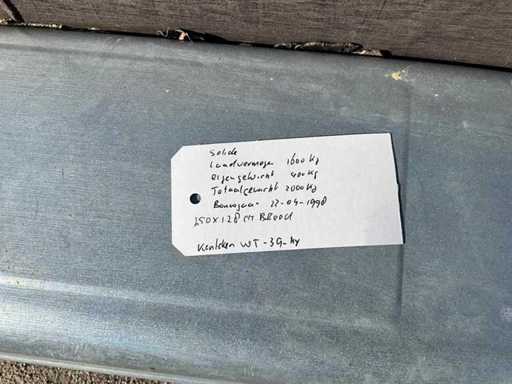 Solide
Laadvermogen 1600 kg
Eigengewicht 400 kg
Totaalgewicht 2000 kg
Bouwjaar 22-04-1998
250 x 128 cm Breed
Kenteken WT-39-